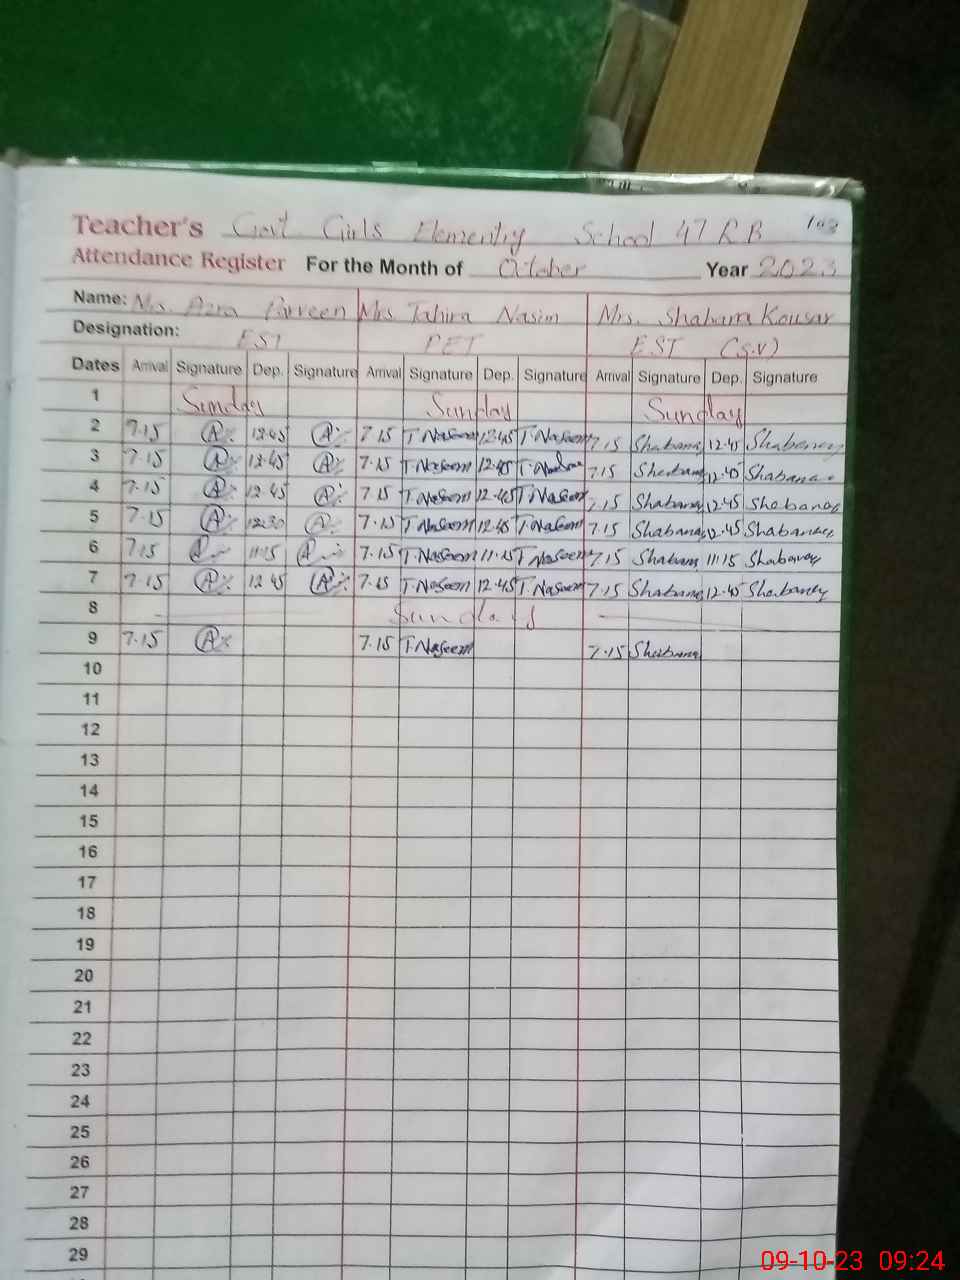 Teacher's Govt. Girls Elementry School 47 R B 103
Attendance Register For the Month of October Year 2023
Name: Mrs. Azra Parveen Mrs Tahira Nasim Mrs. Shabana Kousar
Designation: EST PET EST (S.V)
Dates Arrival Signature Dep. Signature Arrival Signature Dep. Signature Arrival Signature Dep. Signature
1 Sunday Sunday Sunday
2 7.15 12.45 7 15 T.Naseem 12.45 T.Naseem 7.15 Shabana 12.45
3 7.15 12.45 7.15 T.Naseem 12.45 7.15 Shabana 12.45 Shabana
4 7.15 12.45 7.15 T.Naseem 12.45 T.Naseem 7.15 Shabana 12.45 Shabana
5 7.15 12.30 7.15 T.Naseem 12.45 T.Naseem 7.15 Shabana 12.45
6 7.15 11.15 7.15 T.Naseem 11.15 T.Naseem 7.15 Shabana 11.15
7 7.15 12.45 7.15 T.Naseem 12.45 T.Naseem 7.15 Shabana 12.45
8 Sunday
9 7.15 7.15 T.Naseem 7.15 Shabana
10
11
12
13
14
15
16
17
18
19
20
21
22
23
24
25
26
27
28
29
09-10-23 09:24